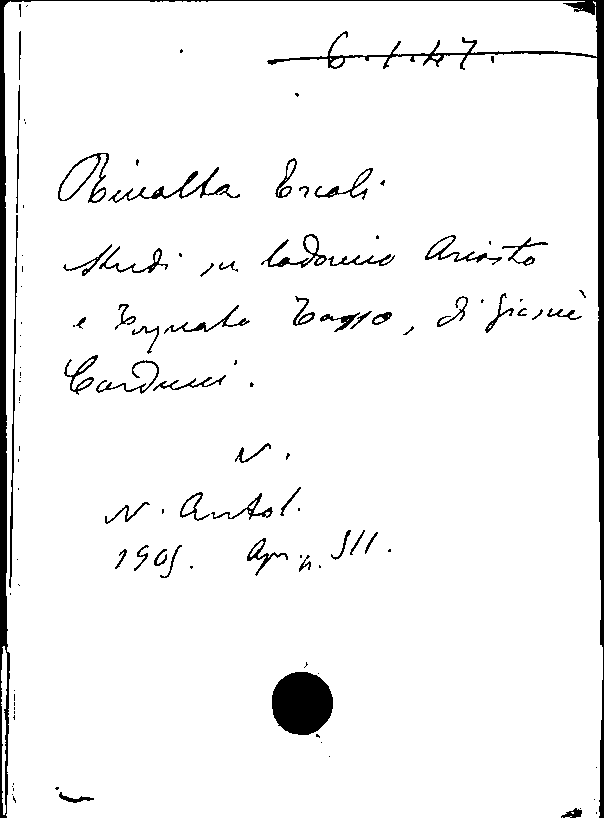 6.1.47.
Rivalta Ercole
Studi su Ludovico Ariosto
e Torquato Tasso, di Giosuè
Carducci.
N.
N. Antol.
1905. Apr. p. 511.